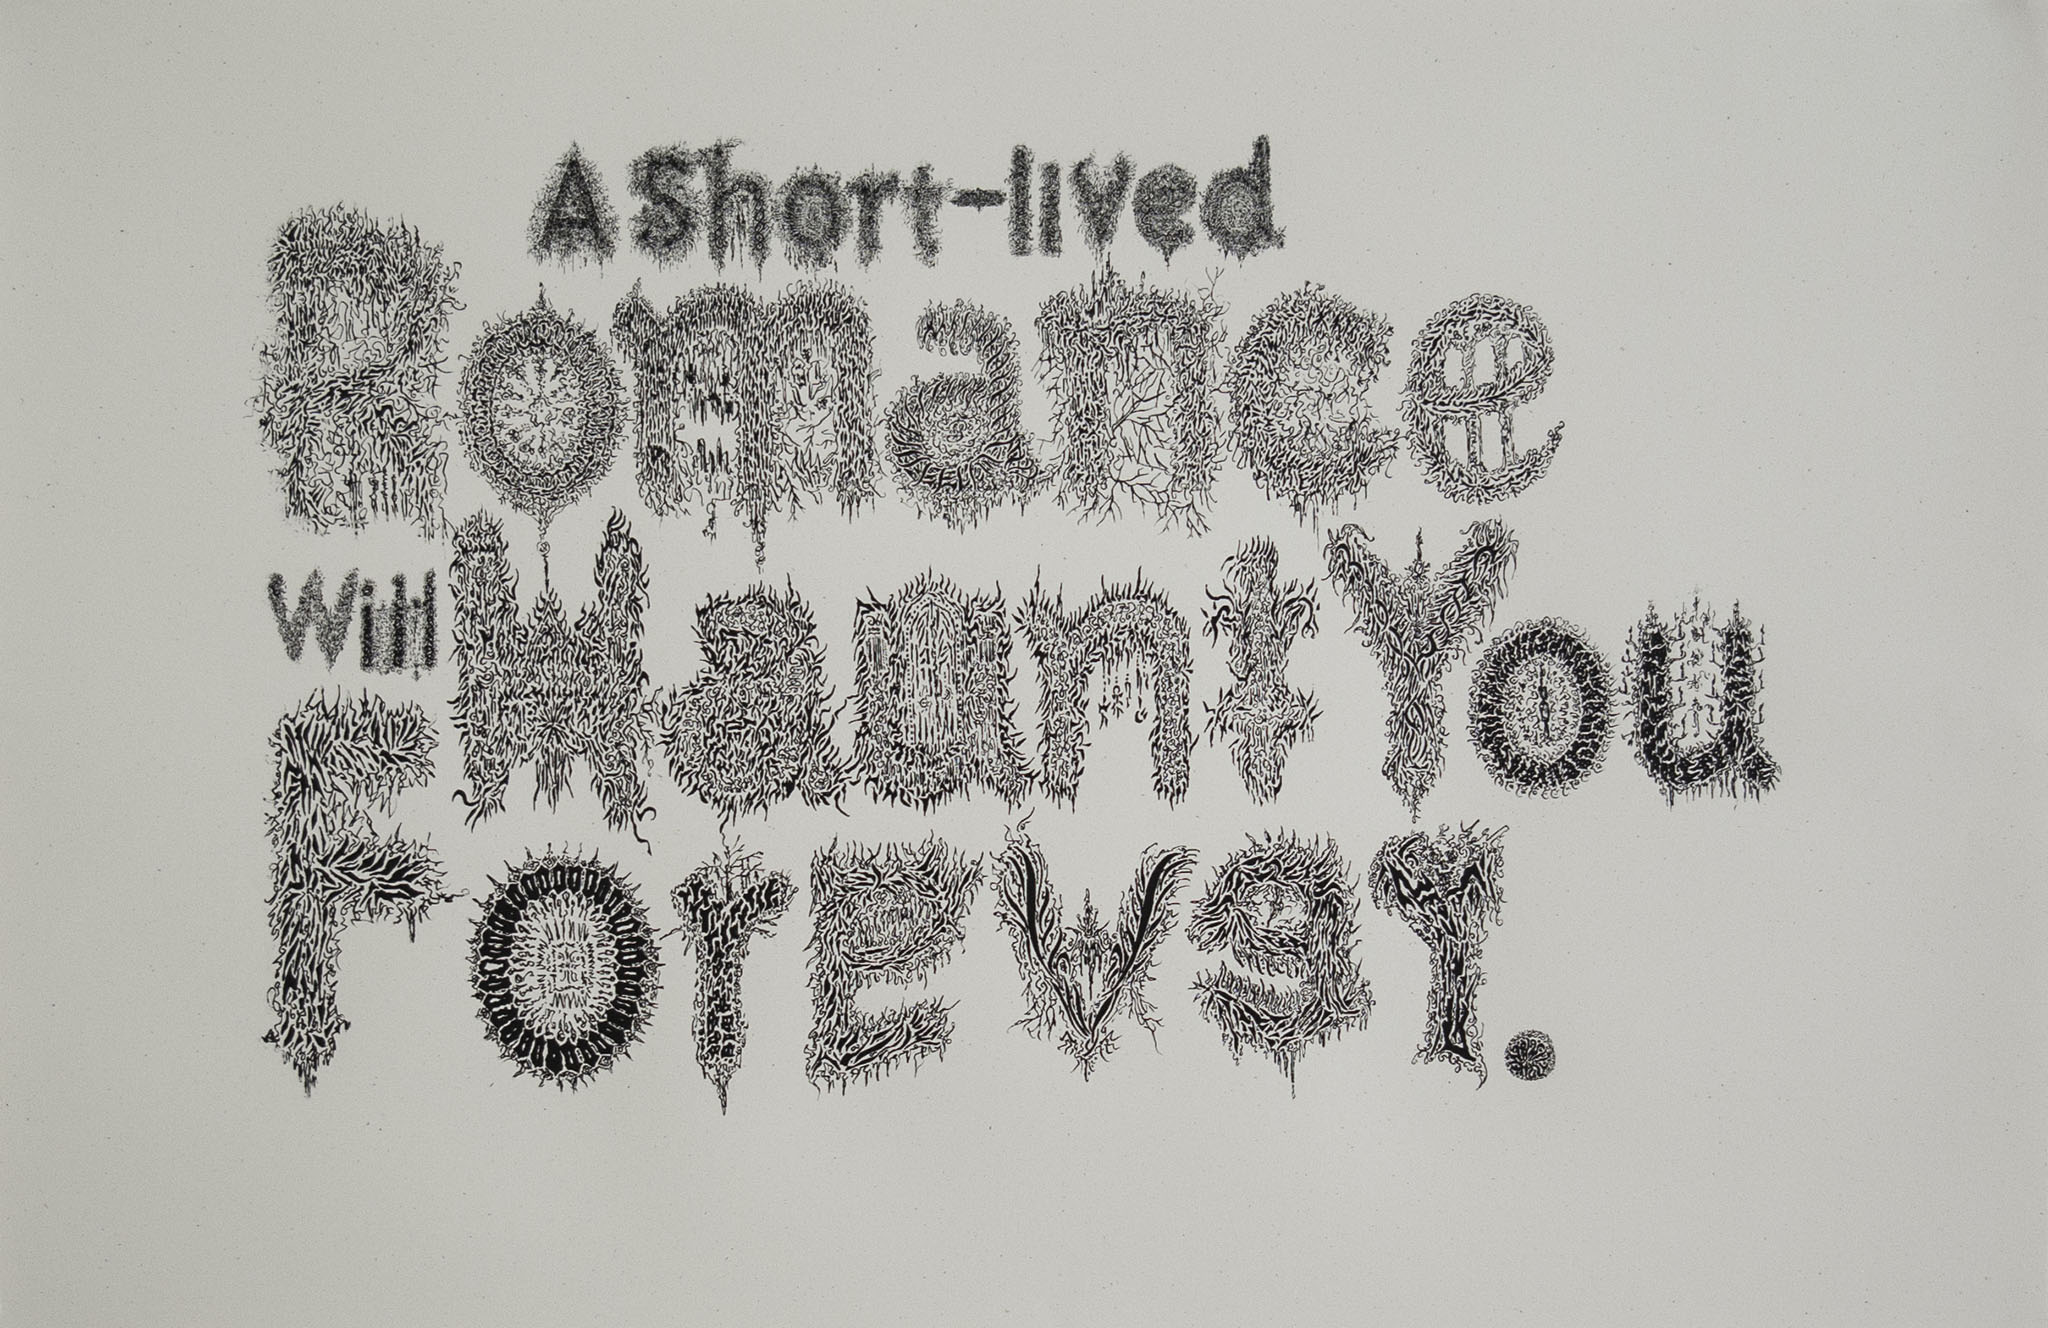 A Short-lived
Romance
Will Haunt You
Forever.